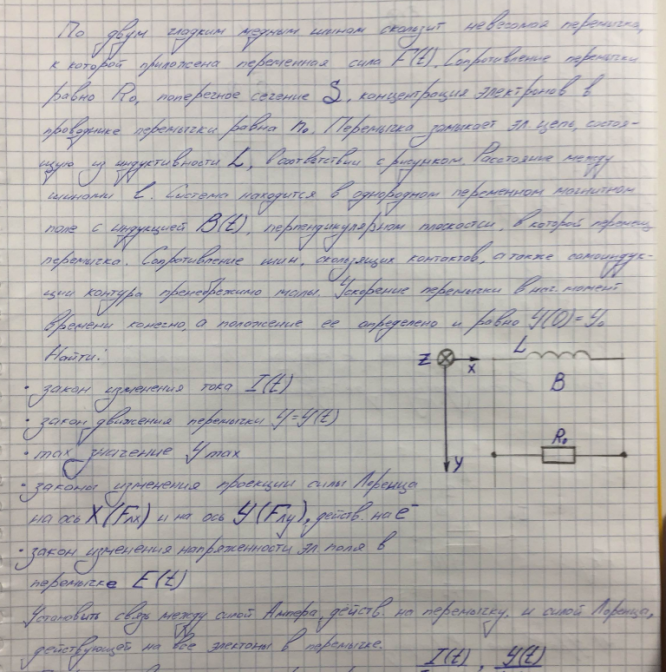 По двум гладким медным шинам скользит невесомая перемычка,
к которой приложена переменная сила F(t). Сопротивление перемычки
равно R₀, поперечное сечение S, концентрация электронов в
проводнике перемычки равна n₀. Перемычка замыкает эл. цепь, состоя-
щую из индуктивности L, в соответствии с рисунком. Расстояние между
шинами l. Система находится в однородном переменном магнитном
поле с индукцией B(t), перпендикулярном плоскости, в которой перемещ.
перемычка. Сопротивление шин, скользящих контактов, а также самоиндук-
ции контура пренебрежимо малы. Ускорение перемычки в нач. момент
времени конечно, а положение ее определено и равно y(0) = y₀
Найти:
• закон изменения тока I(t)
• закон движения перемычки y=y(t)
• max значение y max
• законы изменения проекции силы Лоренца
на ось X (Fлx) и на ось Y (Fлy), действ. на e⁻
• закон изменения напряженности эл. поля в
перемычке E(t)
Установить связь между силой Ампера, действ. на перемычку, и силой Лоренца,
действующей на все электроны в перемычке.
I(t) y(t)
Z X L
B
R₀
Y